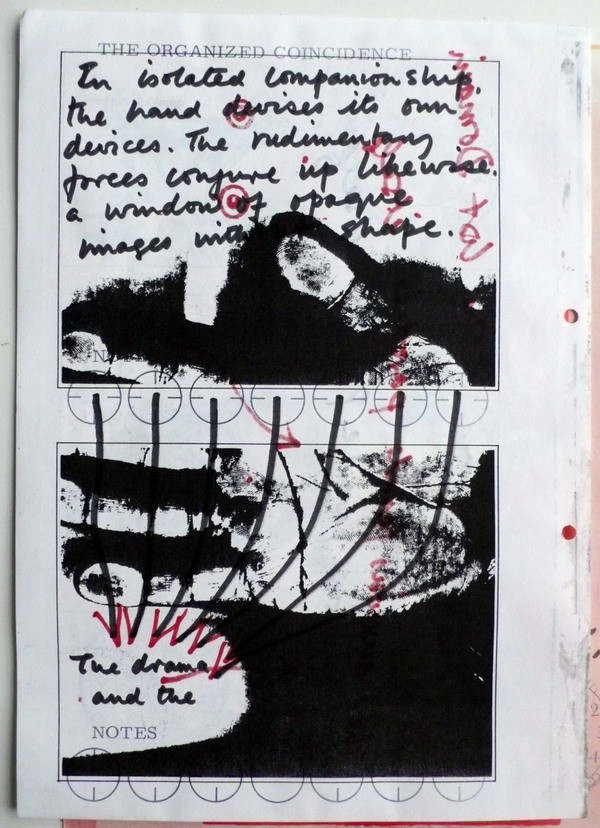 THE ORGANIZED COINCIDENCE
In isolated companionship,
the hand devises its own
devices. The rudimentary
forces conjure up likewise.
a window of opaque
images with shape.
The drama
and the
NOTES